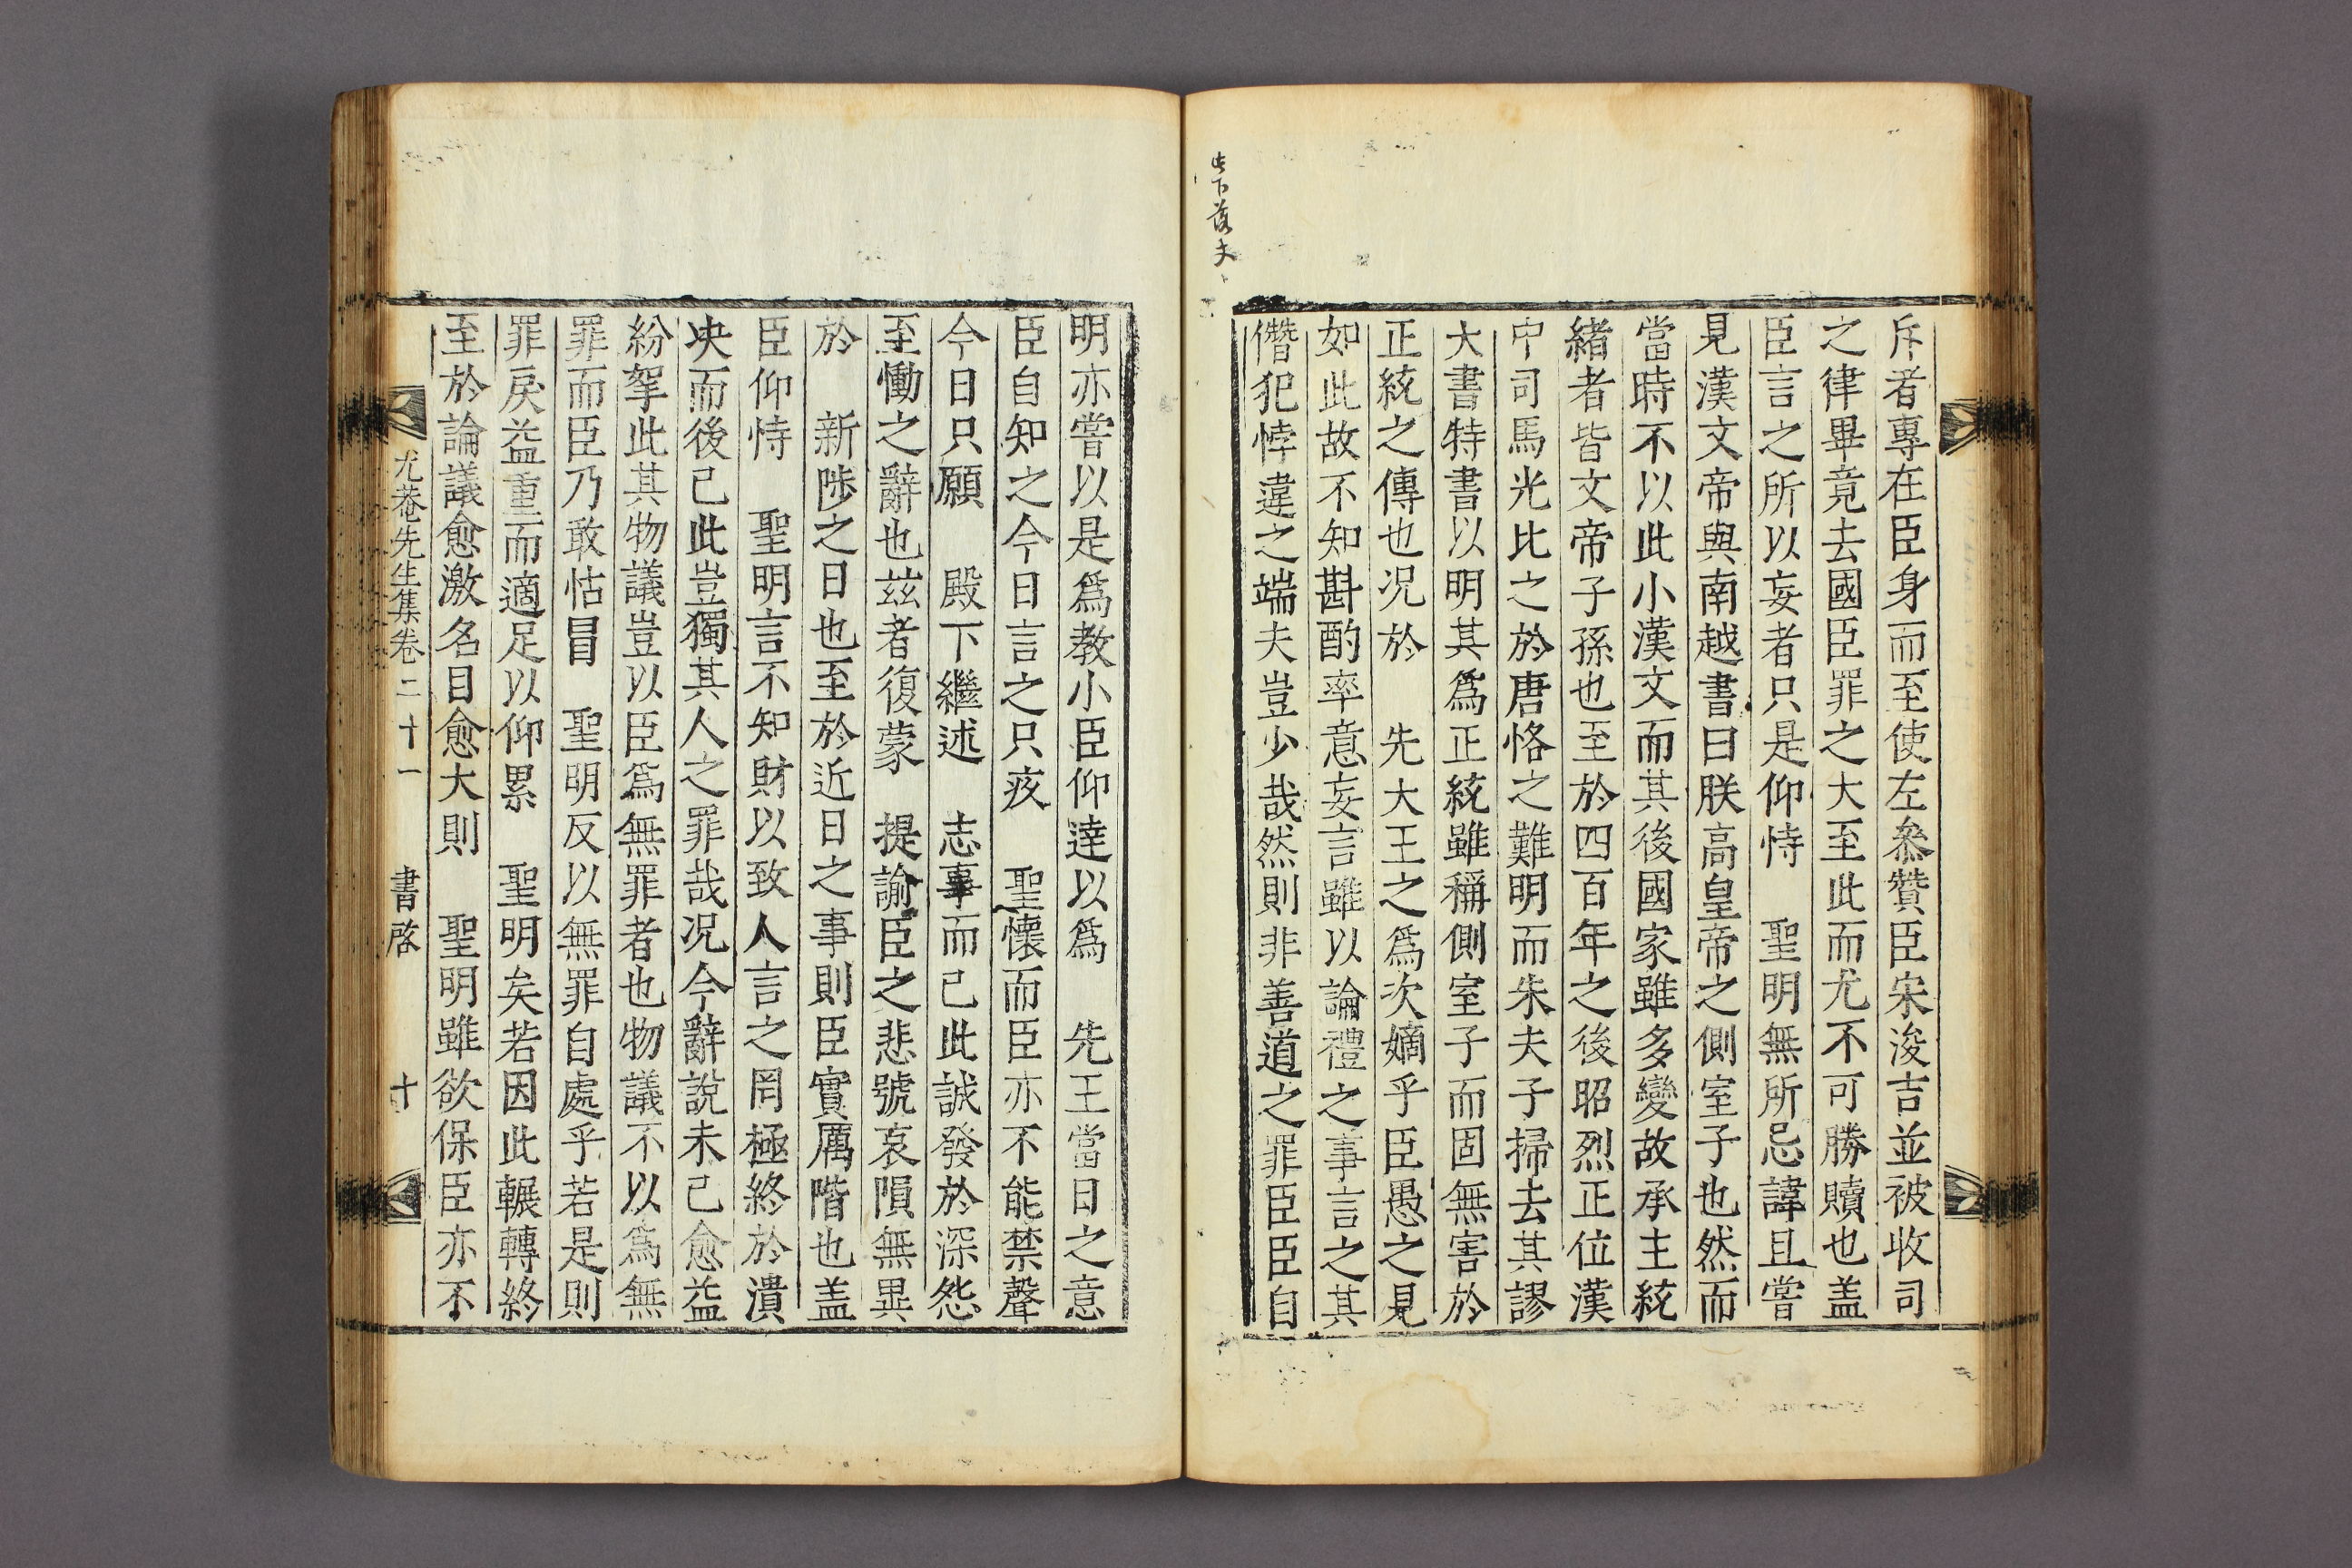 斥者專在臣身而至使左叅贊臣宋浚吉並被收司
之律畢竟去國臣罪之大至此而尤不可勝贖也盖
臣言之所以妄者只是仰恃　聖明無所忌諱且嘗
見漢文帝與南越書曰朕高皇帝之側室子也然而
當時不以此小漢文而其後國家雖多變故承主統
緖者皆文帝子孫也至於四百年之後昭烈正位漢
中司馬光比之於唐恪之難明而朱夫子掃去其謬
大書特書以明其爲正統雖稱側室子而固無害於
正統之傳也况於　先大王之爲次嫡乎臣愚之見
如此故不知斟酌率意妄言雖以論禮之事言之其
僭犯悖違之端夫豈少哉然則非善道之罪臣臣自
此下落丈
明亦嘗以是爲教小臣仰達以爲　先王當日之意
臣自知之今日言之只疚　聖懷而臣亦不能禁聲
今日只願　殿下繼述　志事而已此誠發於深怨
至慟之辭也玆者復蒙　提諭臣之悲號哀隕無異
於　新陟之日也至於近日之事則臣實厲階也盖
臣仰恃　聖明言不知財以致人言之罔極終於潰
决而後已此豈獨其人之罪哉况今辭說未已愈益
紛挐此其物議豈以臣爲無罪者也物議不以爲無
罪而臣乃敢怙冒　聖明反以無罪自處乎若是則
罪戾益重而適足以仰累　聖明矣若因此輾轉終
至於論議愈激名目愈大則　聖明雖欲保臣亦不
尤菴先生集卷二十一　書啓　十